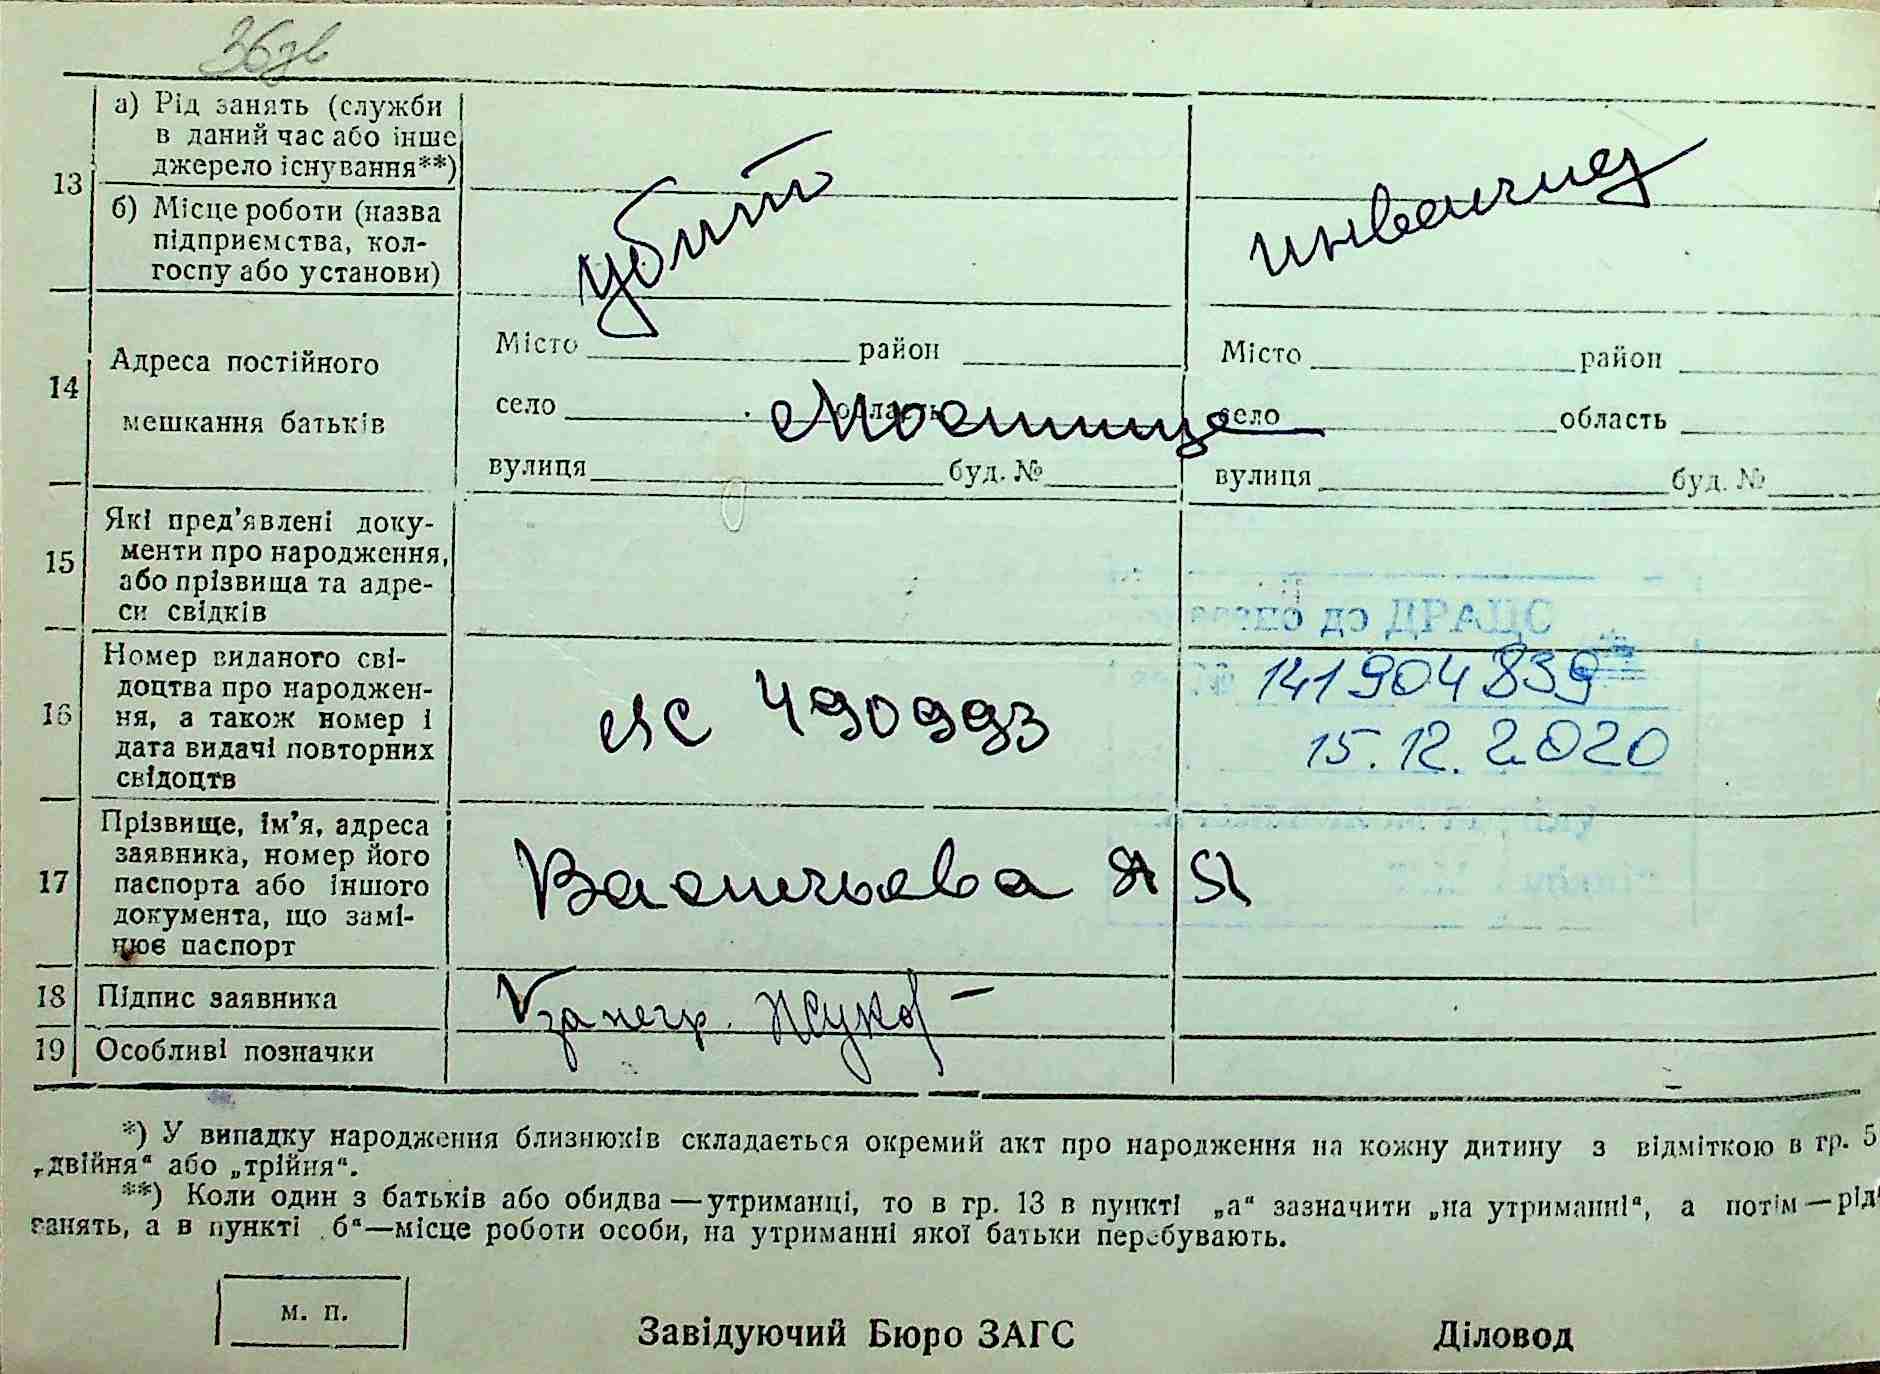 13
а) Рід занять (служби
в даний час або інше
джерело існування**)
б) Місце роботи (назва
підприємства, кол-
госпу або установи)
убито
инвалид
14
Адреса постійного
мешкання батьків
Місто район
село область
вулиця буд. №
Місто район
село область
вулиця буд. №
15
Які пред'явлені доку-
менти про народження,
або прізвища та адре-
си свідків
до ДРАЦС
16
Номер виданого сві-
доцтва про народжен-
ня, а також номер і
дата видачі повторних
свідоцтв
ЯС 490993
№ 141904839
15.12.2020
17
Прізвище, ім'я, адреса
заявника, номер його
паспорта або іншого
документа, що замі-
нює паспорт
Васильева Я Я
18 Підпис заявника
за негр.
19 Особливі позначки
*) У випадку народження близнюків складається окремий акт про народження на кожну дитину з відміткою в гр. 5
„двійня“ або „трійня“.
**) Коли один з батьків або обидва—утриманці, то в гр. 13 в пункті „а“ зазначити „на утриманні“, а потім—рід
занять, а в пункті б“—місце роботи особи, на утриманні якої батьки перебувають.
м. п.
Завідуючий Бюро ЗАГС
Діловод